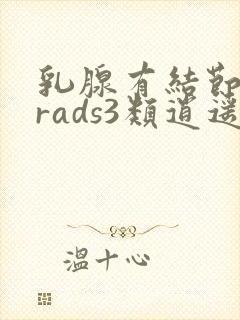 乳腺有結節
rads3類逍遥
溫十心